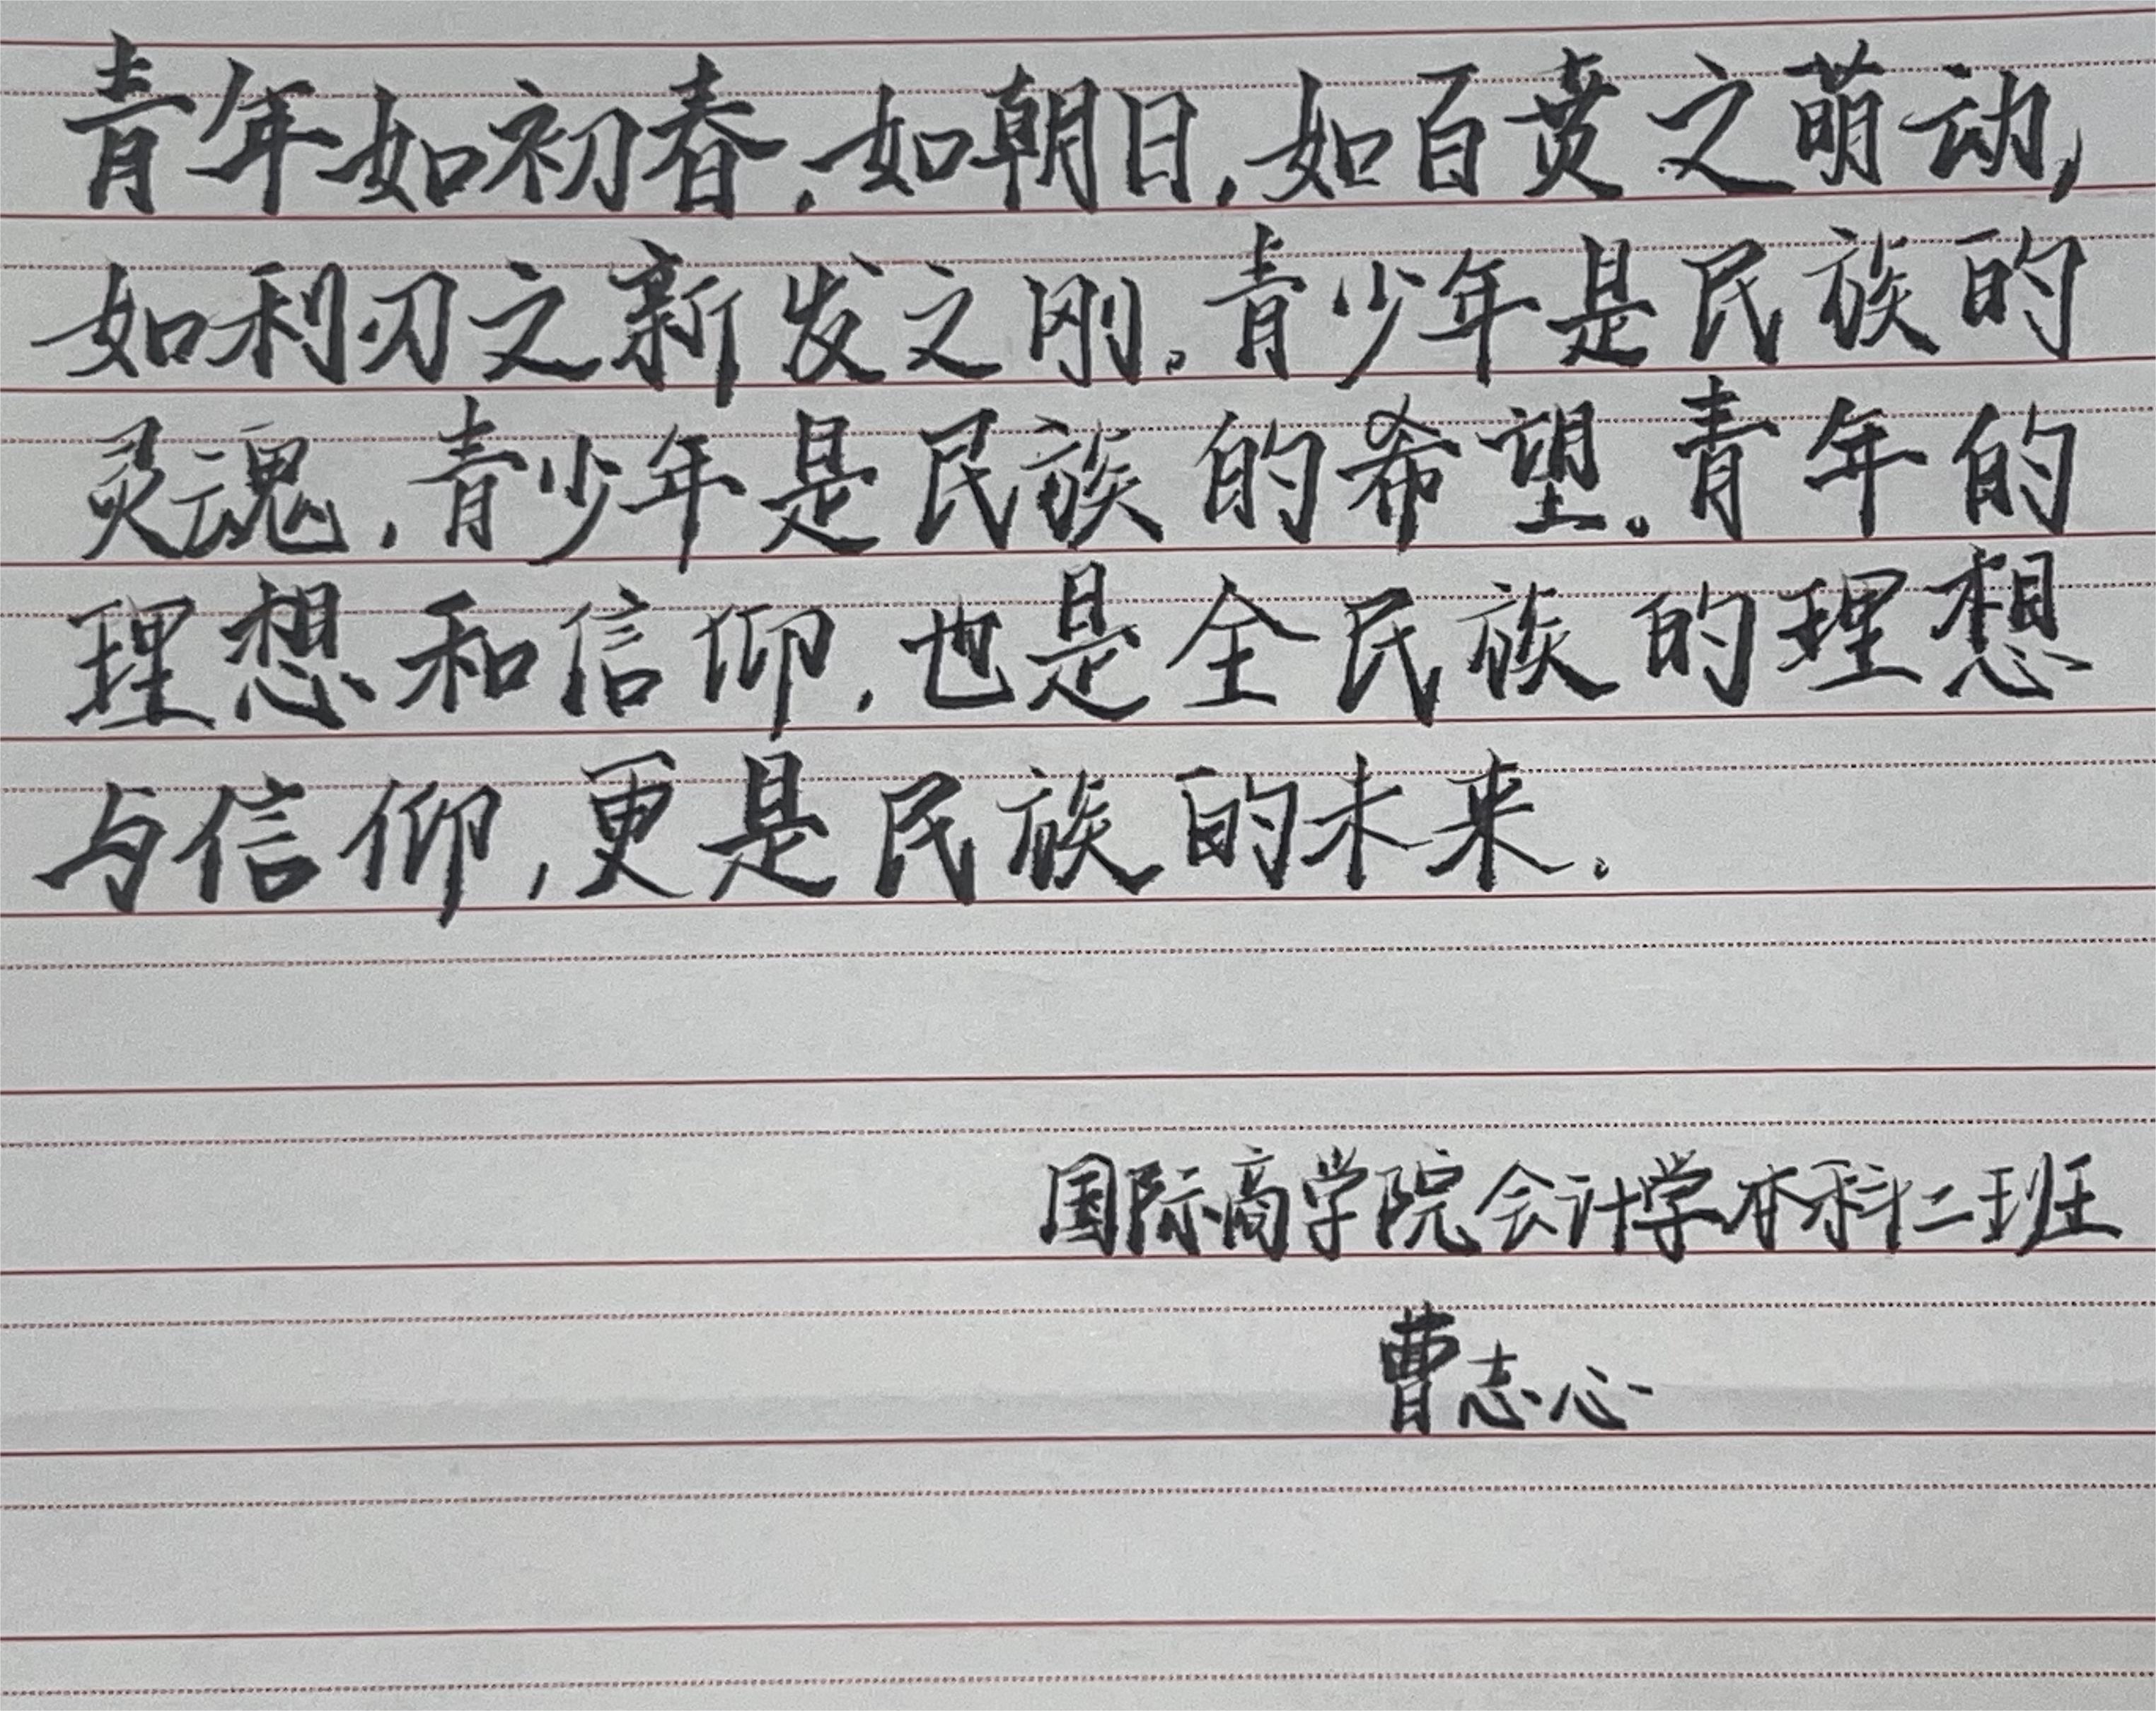 青年如初春,如朝日,如百贲之萌动,
如利刃之新发之刚。青少年是民族的
灵魂,青少年是民族的希望。青年的
理想和信仰,也是全民族的理想
与信仰,更是民族的未来.
国际商学院会计学本科二班
曹志心